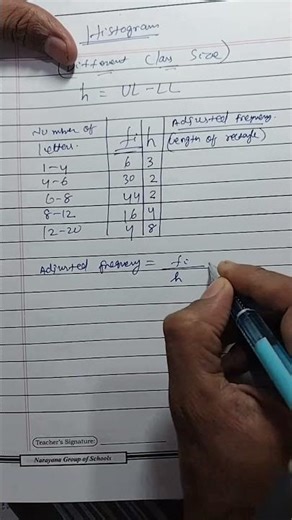 Histogram
(Different Class Size)
h = UL - LL
Number of letters fi h Adjusted frequency (length of rectangle)
1-4 6 3
4-6 30 2
6-8 44 2
8-12 16 4
12-20 4 8
Adjusted frequency = fi / h
(Teacher's Signature:
Narayana Group of Schools